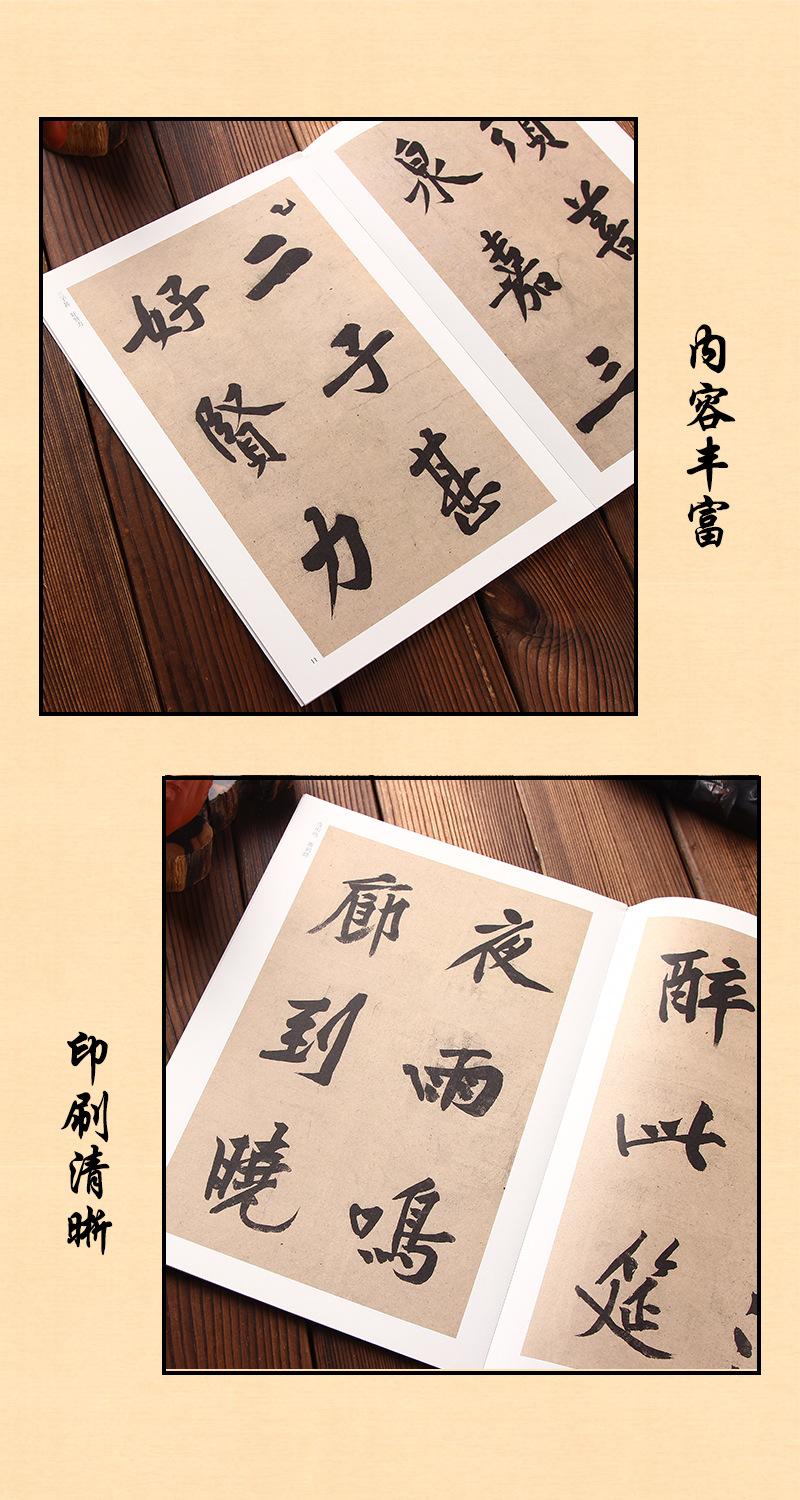 泉
嘉
善
三
二
子
甚
好
賢
力
11
内容丰富
醉
此
筵
夜
雨
鳴
廊
到
曉
印刷清晰